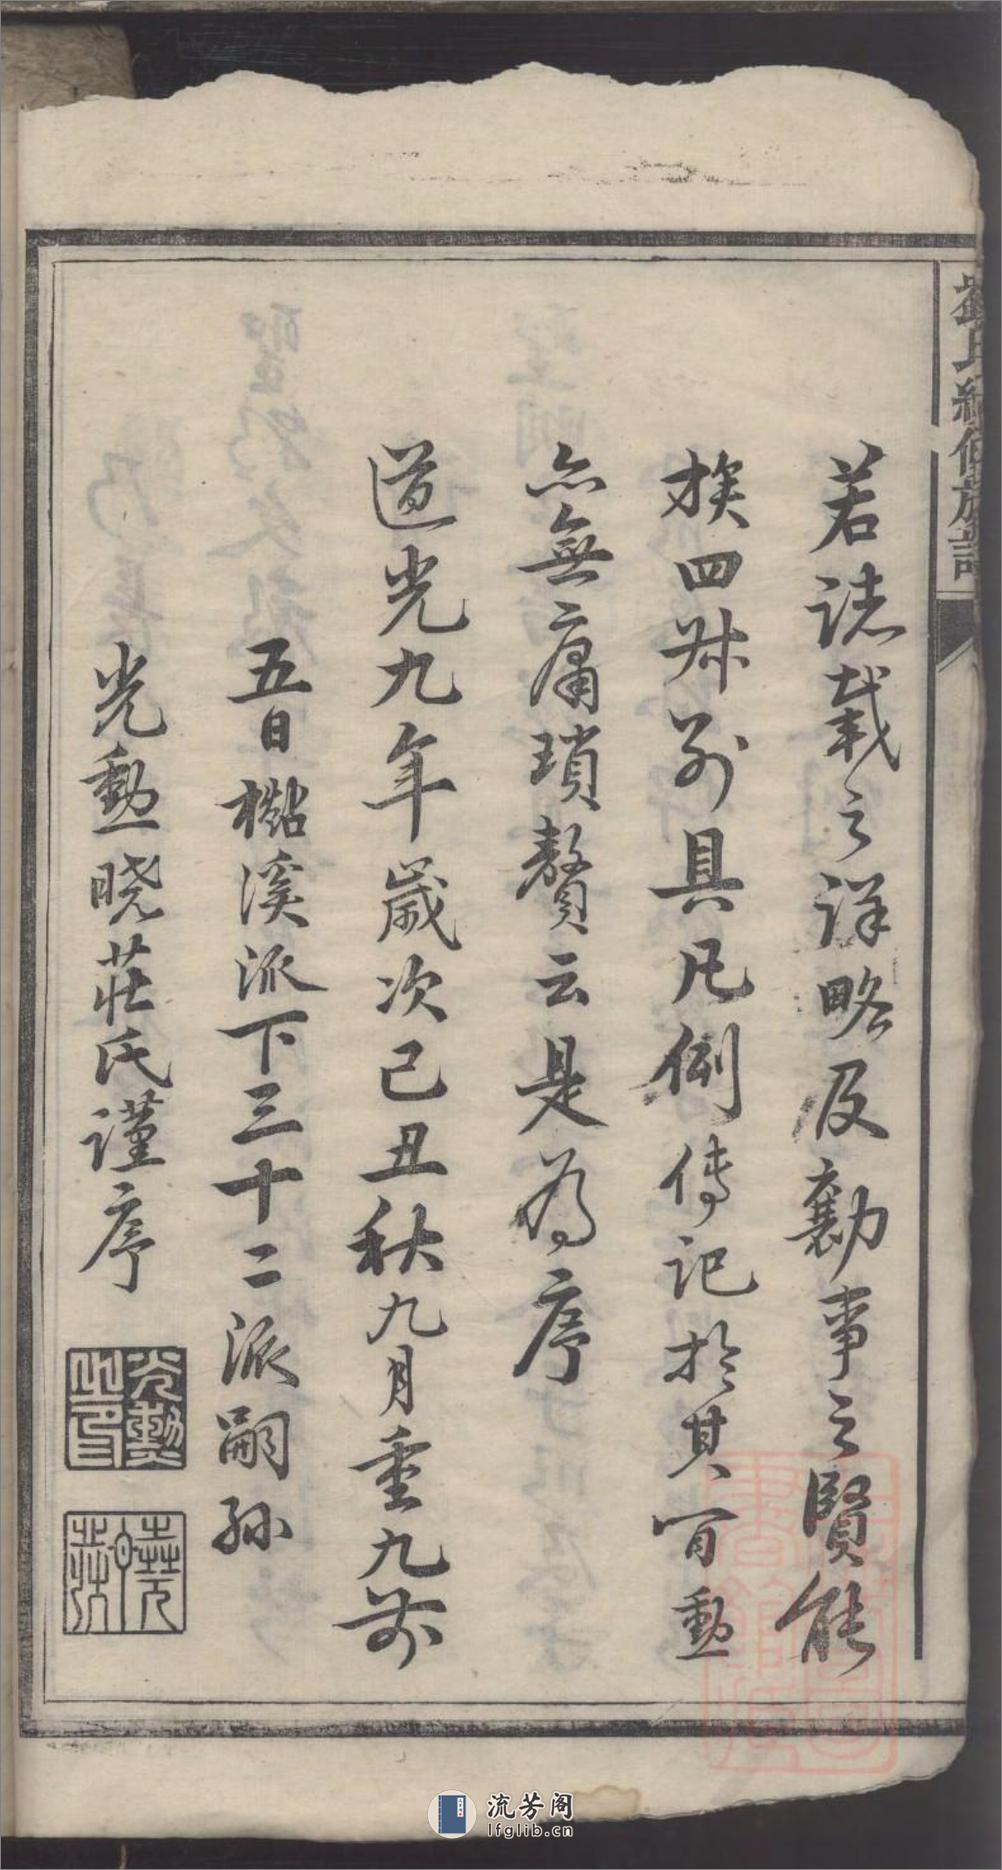 若誌載之詳略及勷事之賢能
族四 別具凡例傳記於其首勳
亦無庸瑣贅云是為序
道光九年歲次己丑秋九月重九前
五日 溪派下三十二派嗣孫
光勳曉莊氏謹序
光勳之印
曉莊
氏續修族譜
流芳阁
lfglib.cn